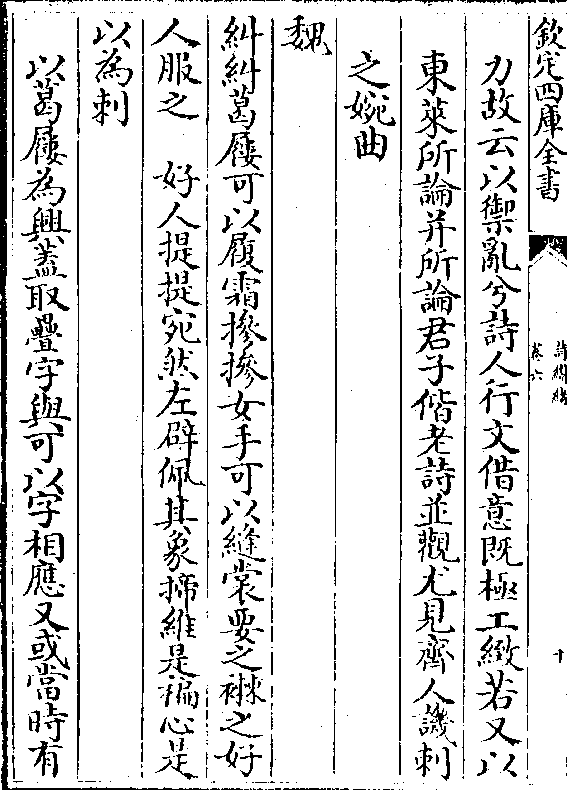 欽定四庫全書
詩纘緒
卷六
十
力故云以禦亂兮詩人行文借意既極工緻若又以
東萊所論并所論君子偕老詩並觀尤見齊人譏刺
之婉曲
魏
糾糾葛屨可以履霜摻摻女手可以縫裳要之襋之好
人服之　好人提提宛然左辟佩其象揥維是褊心是
以為刺
以葛屨為興蓋取疊字與可以字相應又或當時有